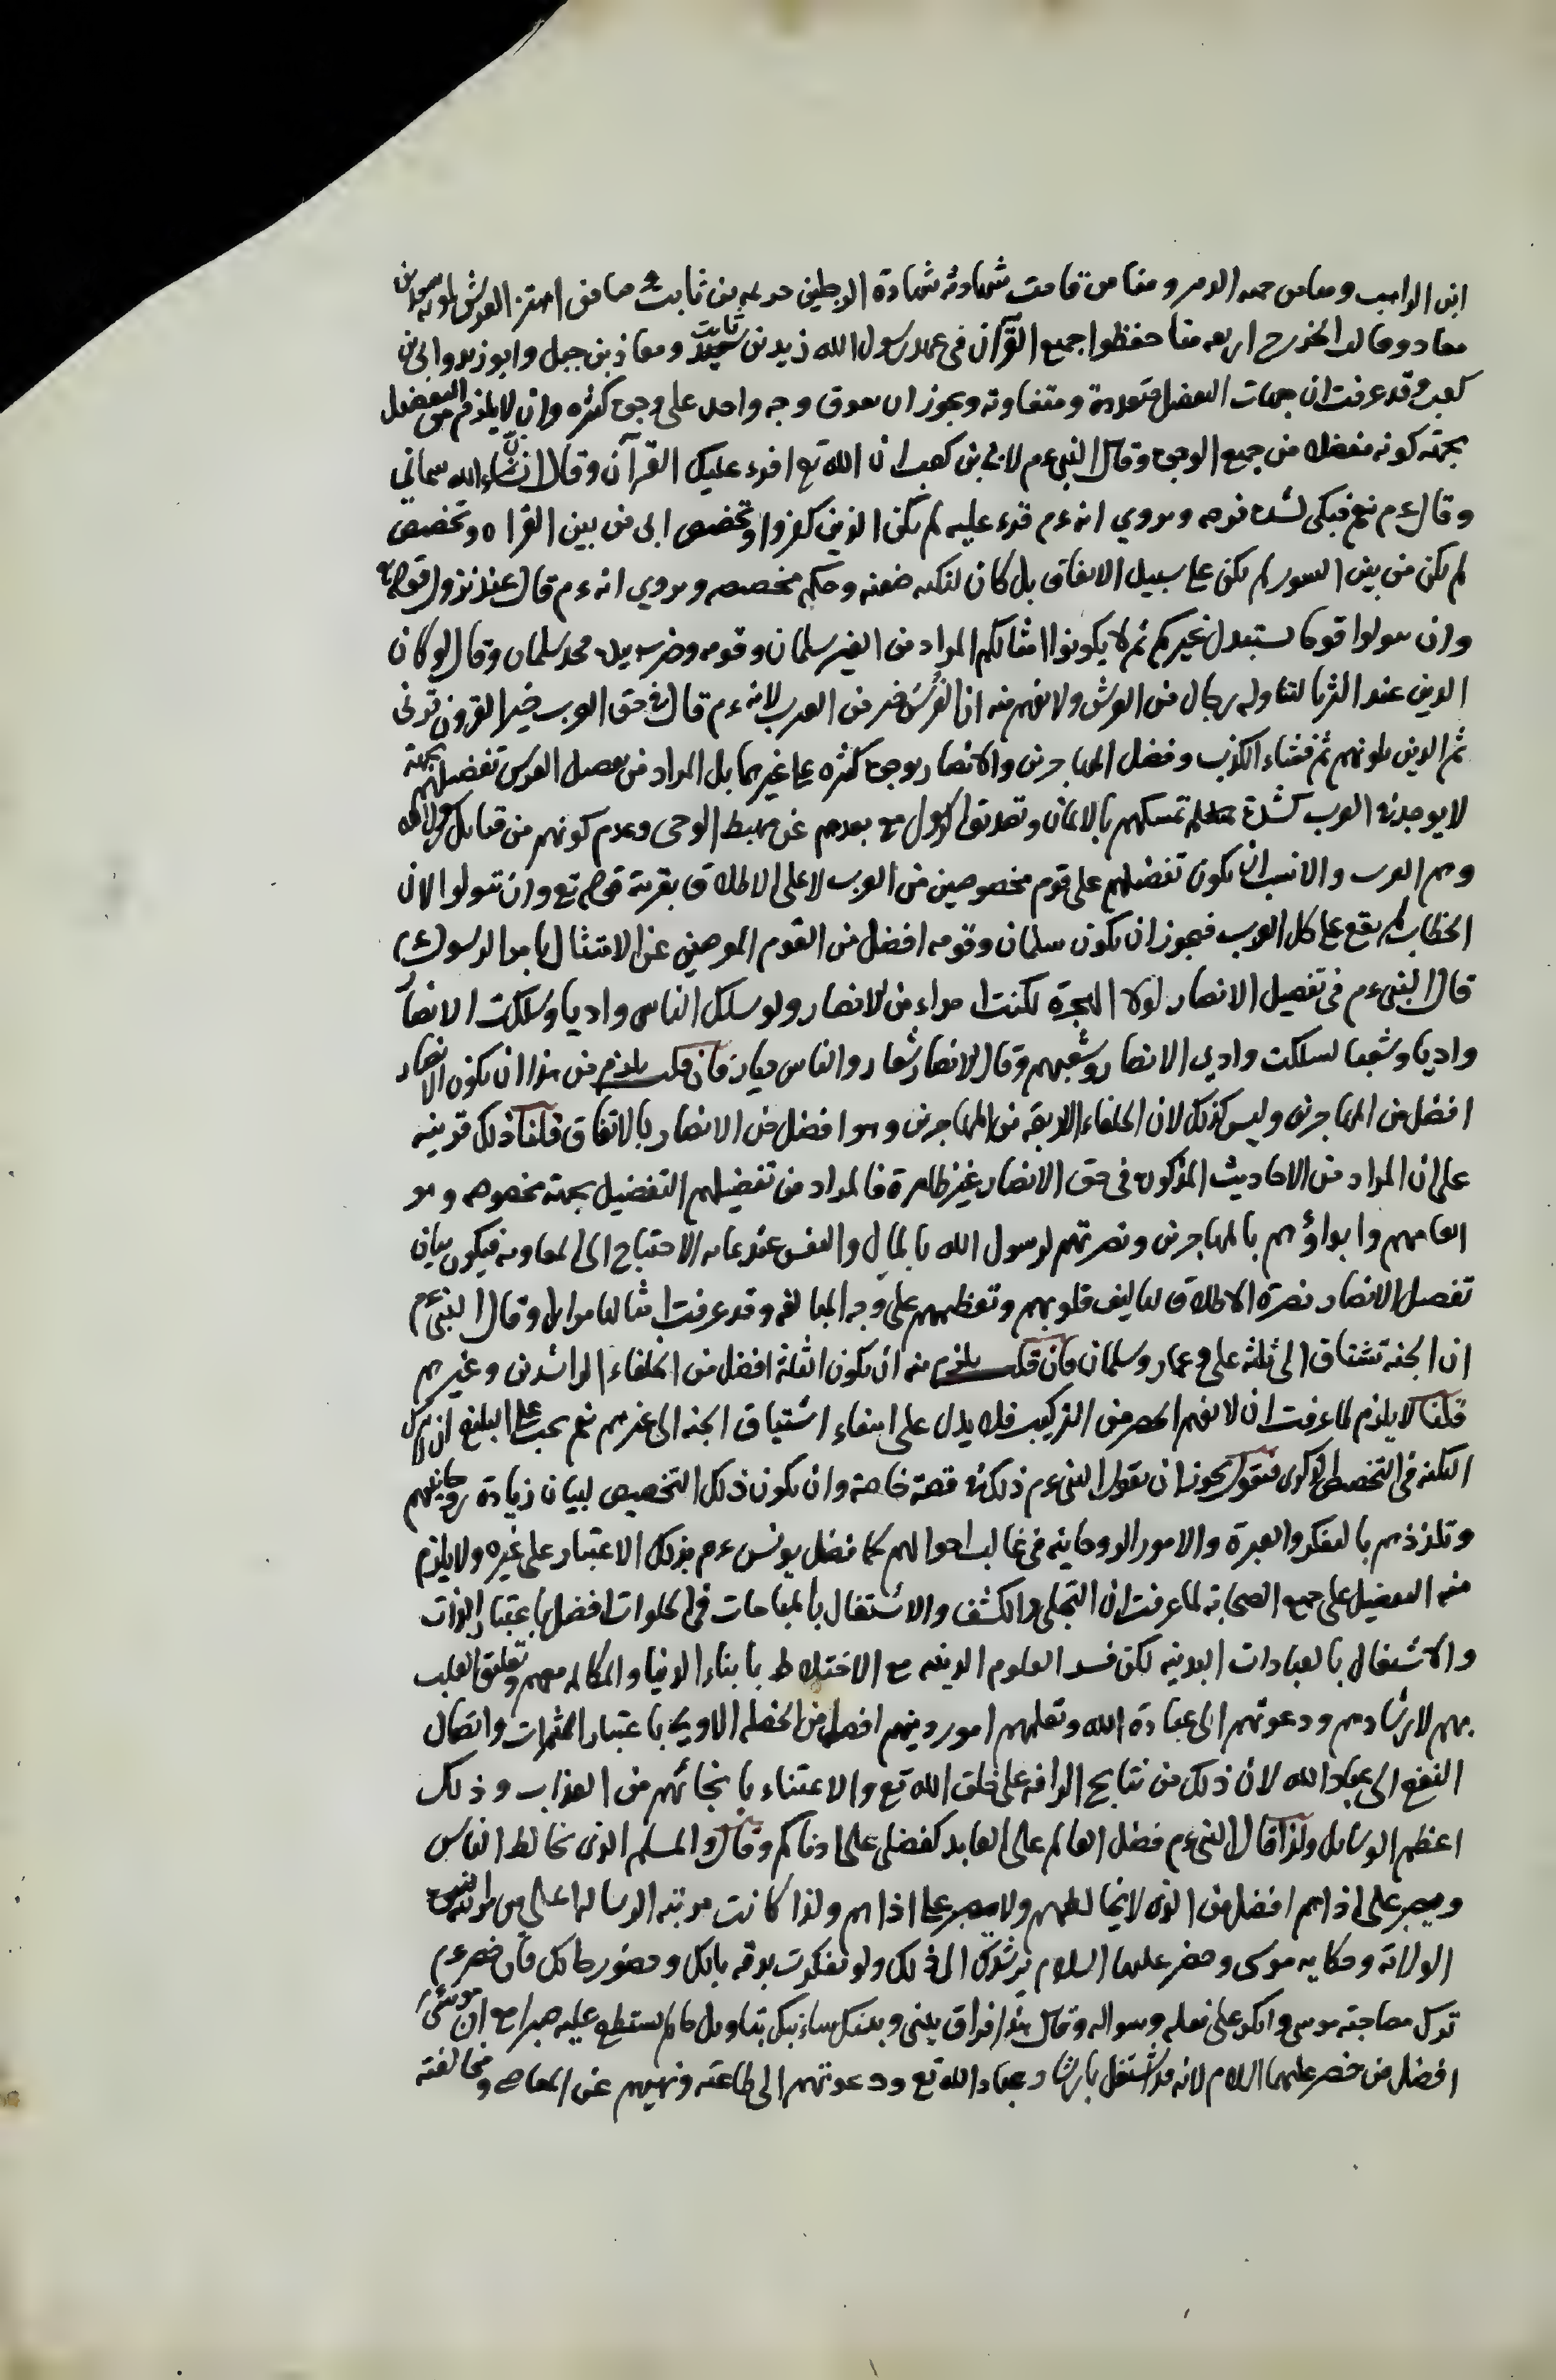 ابن الراهب ومنا من حمته الدبر ومنا من قامت شهادته شهادة الرجلين خزيمة بن ثابت ومنا من اهتز العرش لموته سعد بن
معاذ وقالت الخزرج اربعة منا حفظوا جميع القرآن فى عهد رسول الله زيد بن ثابت ومعاذ بن جبل وابو زيد وابى بن
كعب وقد عرفت ان جهات التفضيل متعددة ومتفاوته ويجوز ان يفوق وجه واحد على وجوه كثيره وان لا يلزم من التفضيل
بجهته كونه مفضلا من جميع الوجوه وقال النبى ءم لابى بن كعب ان الله تع اقرء عليك القرآن وقال ان الله سمانى
وقال ءم نعم فبكى لشدة فرحه وروي انه ءم قرء عليه لم يكن الذين كفروا وتخصص ابى من بين القراء وتخصص
لم يكن من بين السور لم يكن على سبيل الاتفاق بل كان لنكته خفيه وحكم مخصصه وروي انه ءم قال عند نزول قوله تع
وان تتولوا قوما يستبدل غيركم ثم لا يكونوا امثالكم المراد من الغير سلمان وقومه وضرب بيده فخد سلمان وقال لو كان
الدين عند الثريا لتناوله رجال من الفرس ولا يفهم منه ان الفرس خير من العرب لانه ءم قال فى حق العرب خير القرون قرنى
ثم الذين يلونهم ثم فشاء الكذب وفضل المهاجرين والانصار بوجوه كثيره على غيرهما بل المراد من تفضيل الفرس تفضيلهم بجهته
لا يوجد فى العرب كشدة تمسكهم بالايمان وتصديق الرسول مع بعدهم عن مهبط الوحى وعدم كونهم من قبائل
وهم العرب والانسب ان يكون تفضيلهم على قوم مخصوصين من العرب لا على الاطلاق بقرينة قوله تع وان تتولوا لان
الخطاب لم يقع على كل العرب فيجوز ان يكون سلمان وقومه افضل من القوم المعرضين عن الامتثال بامر الرسول
قال النبى ءم فى تفضيل الانصار لولا الهجرة لكنت امراء من الانصار ولو سلك الناس واديا وسلكت الانصار
واديا وشعبا لسلكت وادي الانصار وشعبهم وقال الانصار شعار والناس دثار فان قلت يلزم من هذا ان يكون الانصار
افضل من المهاجرين وليس كذلك لان الخلفاء الاربعة من المهاجرين وهو افضل من الانصار بالاتفاق قلنا ذلك قرينه
على ان المراد من الاحاديث المذكورة فى حق الانصار غير ظاهرة فالمراد من تفضيلهم التفضيل بجهته مخصوصه وهو
انعامهم وايواؤهم بالمهاجرين ونصرتهم لرسول الله بالمال والنفس عند غاية الاحتياج الى المعاونه فيكون بيان
تفضيل الانصار بصورة الاطلاق لتاليف قلوبهم وتعظيمهم على وجه المبالغه وقد عرفت امثالنا مرارا وقال النبى ءم
ان الجنه تشتاق الى ثلثه على وعمار وسلمان فان قلت يلزم منه ان يكون الثلثة افضل من الخلفاء الراشدين وغيرهم
قلنا لا يلزم لما عرفت ان لا يفهم الحصر من التركيب فلا يدل على انتفاء اشتياق الجنه الى غيرهم نعم يجب على البليغ ان يدرك
النكته فى التخصيص الذكرى فنقول يجوز ان يقول النبى ءم ذلك فى قصة خاصة وان يكون ذلك التخصيص لبيان زيادة روحانيتهم
وتلذذهم بالفكر والعبرة والامور الروحانيه فى غالب احوالهم كما فضل يونس ءم بذلك الاعتبار على غيره ولا يلزم
منه التفضيل على جميع الصحابة لما عرفت ان التجلى والكشف والاشتغال بالمناجات فى الخلوات افضل باعتبار الذات
والاشتغال بالعبادات البدنيه لكن نشر العلوم الدينيه مع الاختلاط بابناء الدنيا والمكالمه معهم وتعلق القلب
بهم لارشادهم ودعوتهم الى عبادة الله وتعليمهم امور دينهم افضل من الخصلة الاولى باعتبار الثمرات واتصال
النفع الى عباد الله لان ذلك من نتايج الرافة على خلق الله تع والاعتناء بانجائهم من العذاب وذلك
اعظم الوسايل ولذا قال النبى ءم فضل العالم على العابد كفضلى على ادناكم وقال والمسلم الذى يخالط الناس
ويصبر على اذاهم افضل من الذى لا يخالطهم ولا يصبر على اذاهم ولذا كانت مرتبة الرسالة اعلى من مرتبة النبوة
الولاية وحكاية موسى وخضر عليهما السلام يرشدك الى ذلك ولو تفكرت بدقة بالك وحضور حالك فان خضر ءم
ترك مصاحبته موسى وانكر على فعله وسواله وقال هذا فراق بينى وبينك سانبئك بتاويل ما لم تستطع عليه صبرا مع ان موسى
افضل من خضر عليهما السلام لانه قد اشتغل بارشاد عباد الله تع ودعوتهم الى طاعته ونهيهم عن المعاصى ومخالفته